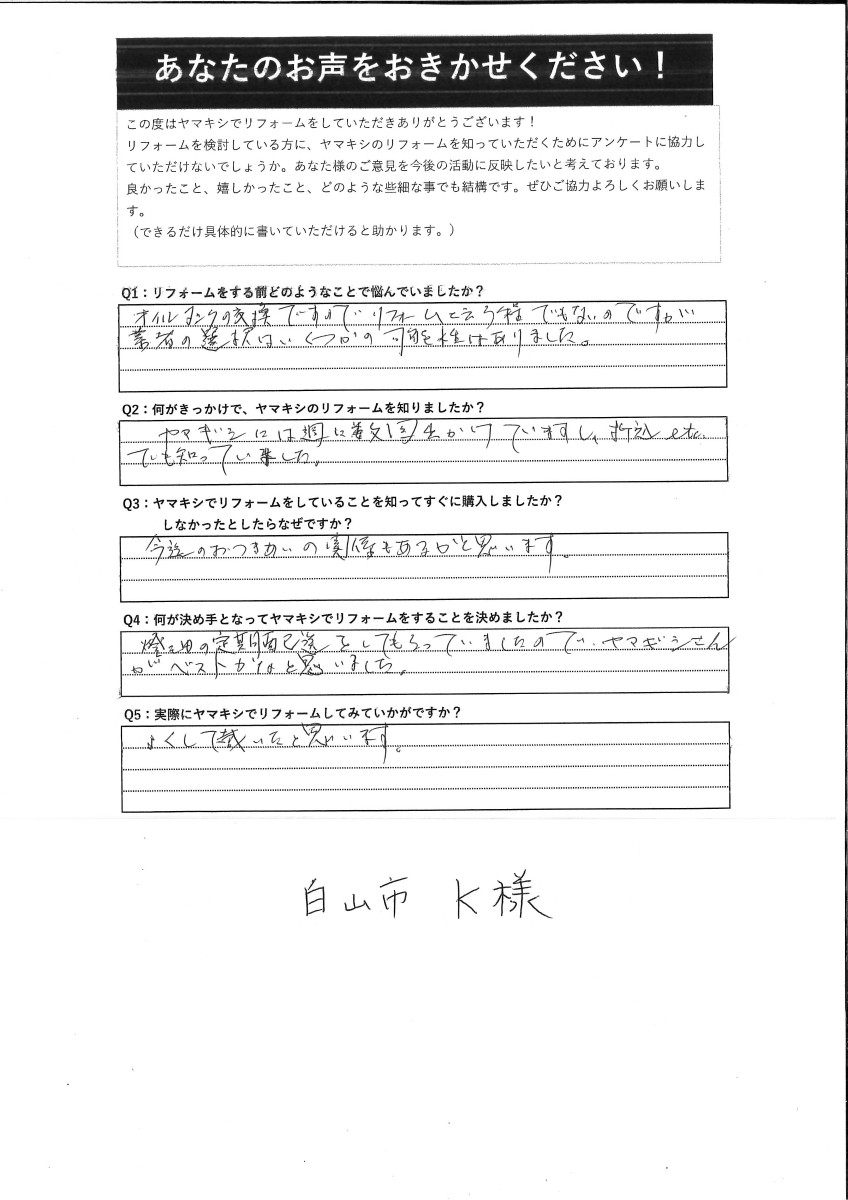 あなたのお声をおきかせください！
この度はヤマキシでリフォームをしていただきありがとうございます！
リフォームを検討している方に、ヤマキシのリフォームを知っていただくためにアンケートに協力し
ていただけないでしょうか。あなた様のご意見を今後の活動に反映したいと考えております。
良かったこと、嬉しかったこと、どのような些細な事でも結構です。ぜひご協力よろしくお願いしま
す。
（できるだけ具体的に書いていただけると助かります。）
Q1：リフォームをする前どのようなことで悩んでいましたか？
オイルタンクの交換ですのでリフォームと云う程でもないのですが
業者の選択はいくつかの可能性はありました。
Q2：何がきっかけで、ヤマキシのリフォームを知りましたか？
ヤマギシには週に数回出かけていますし、折込etc.
でも知っていました。
Q3：ヤマキシでリフォームをしていることを知ってすぐに購入しましたか？
しなかったとしたらなぜですか？
今迄のおつきあいの関係もあるかと思います。
Q4：何が決め手となってヤマキシでリフォームをすることを決めましたか？
燈油の定期配送をしてもらっていましたので、ヤマギシさん
がベストかなと思いました。
Q5：実際にヤマキシでリフォームしてみていかがですか？
よくして戴いたと思います。
白山市 K様